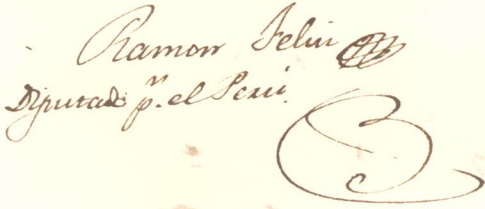 Ramon Feliu
Diputado pr. el Perú.